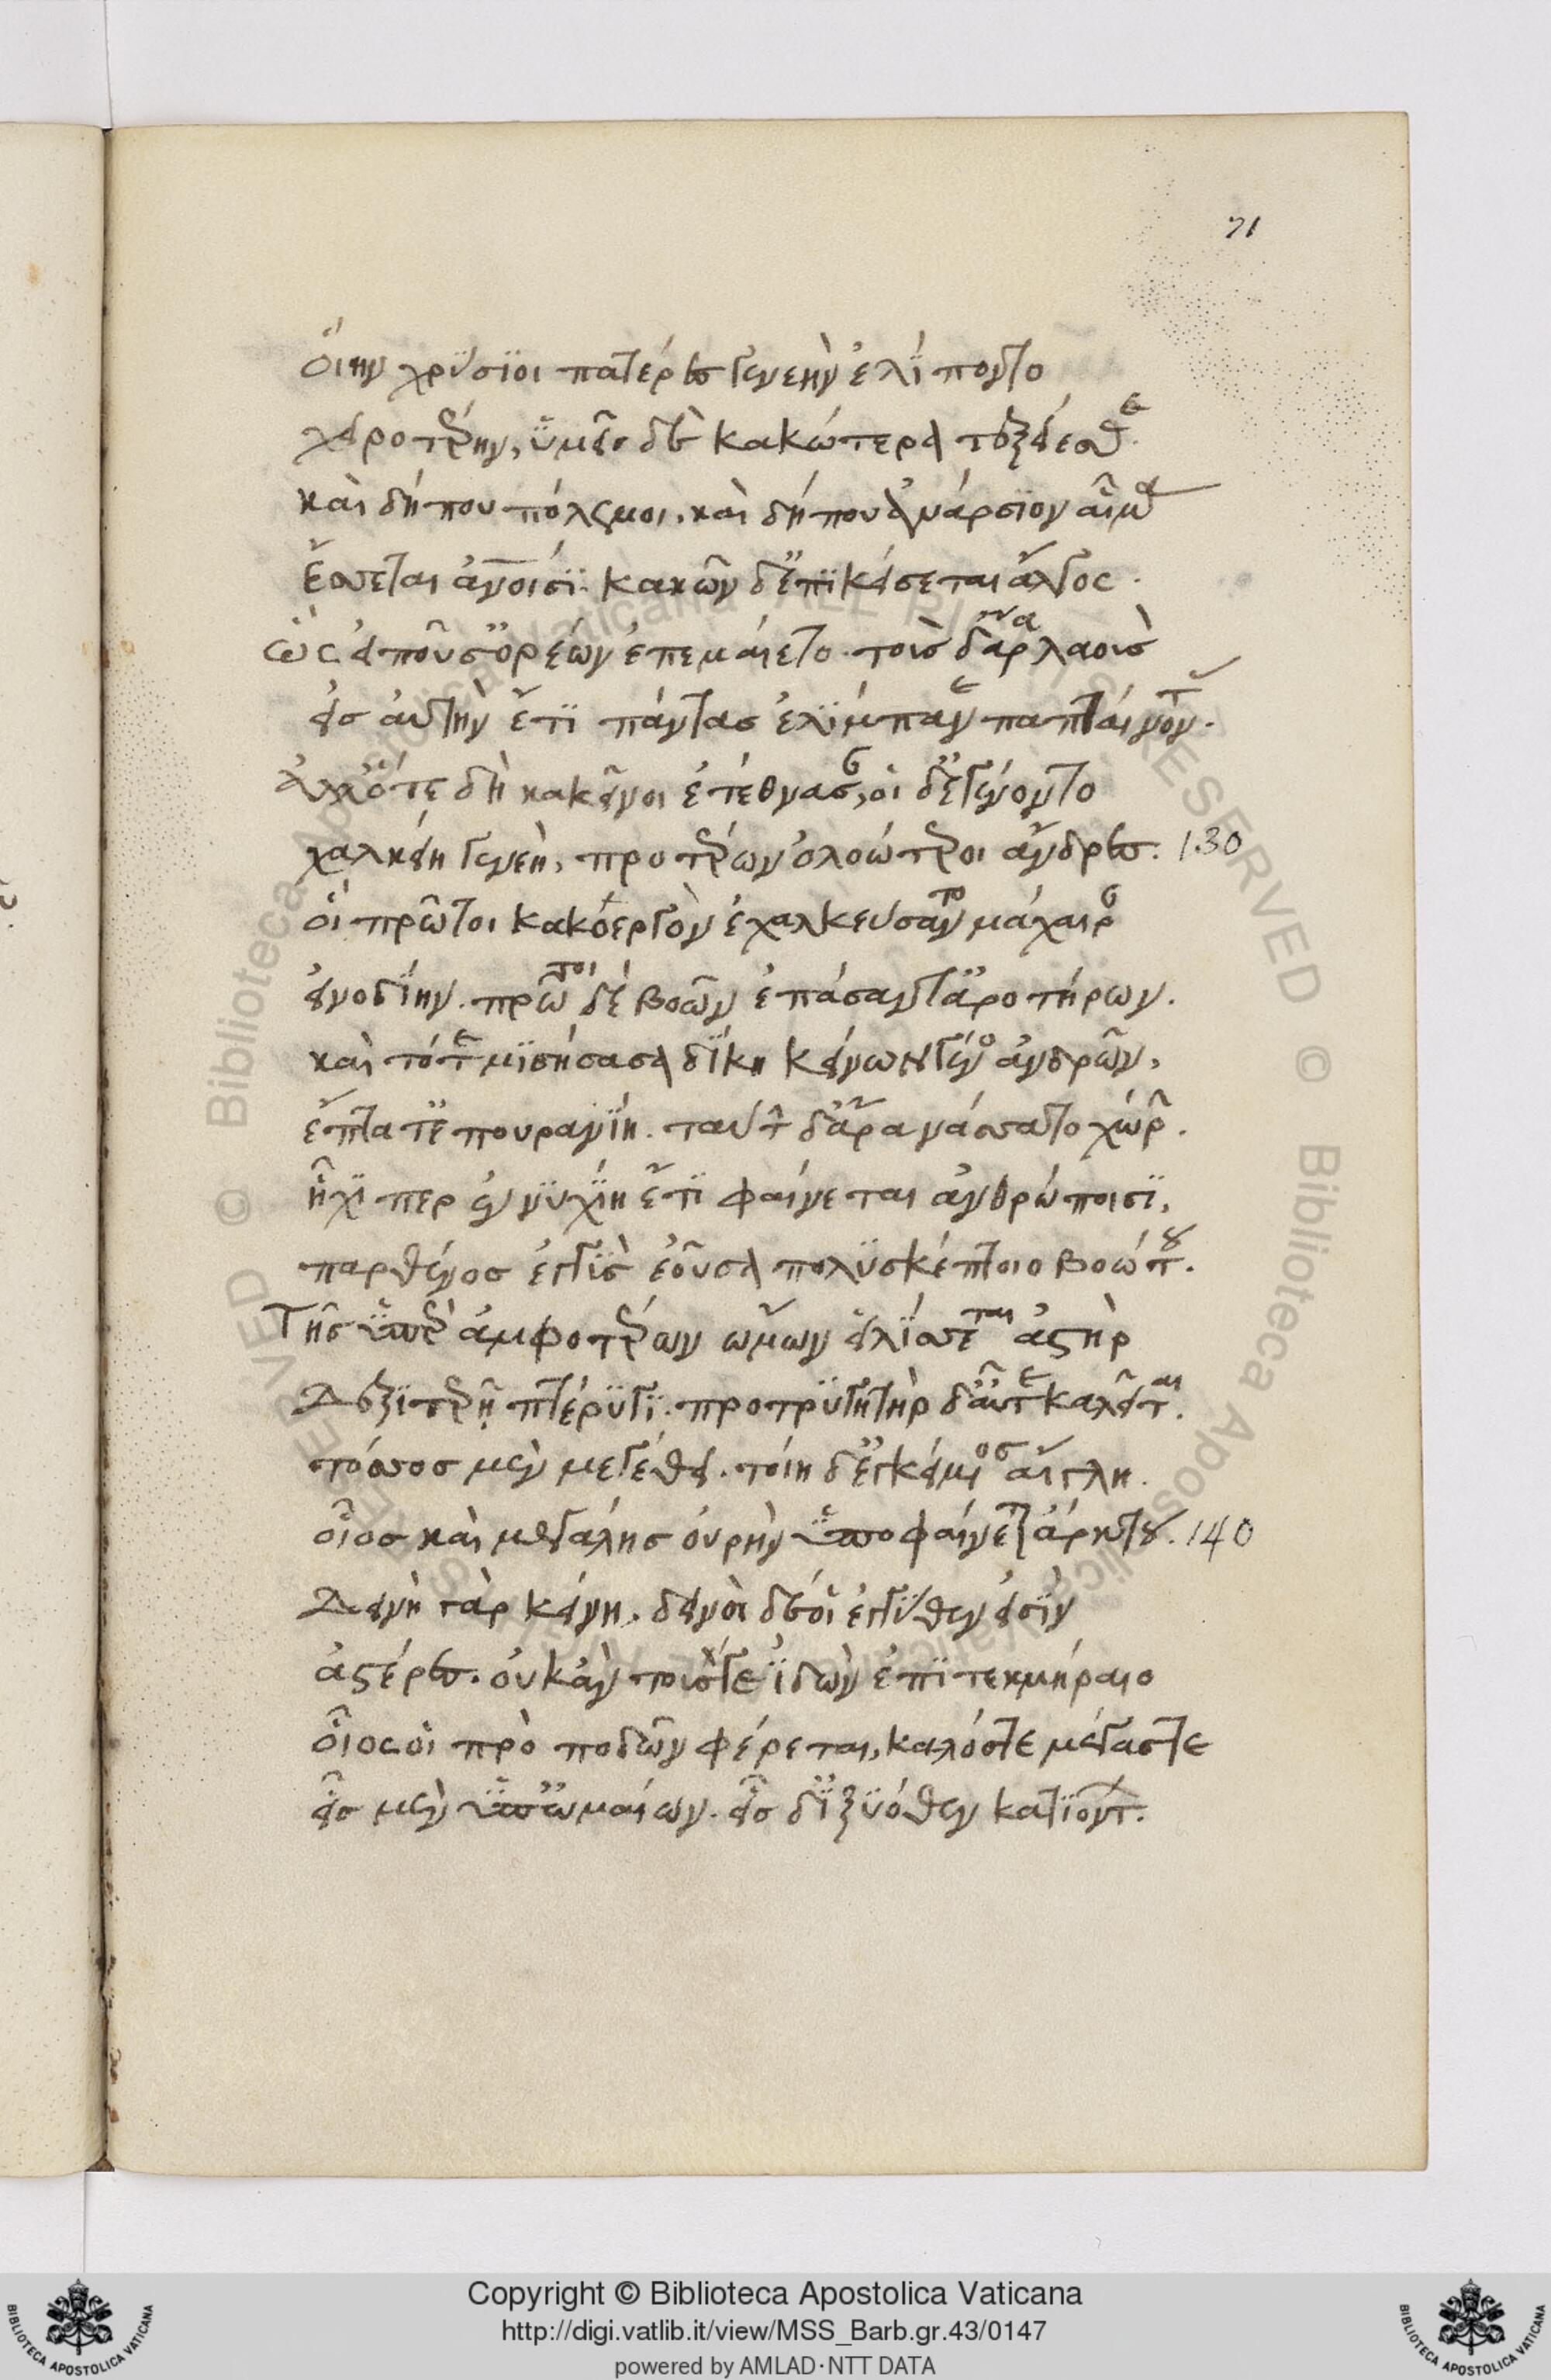 71
οἵην χρύσϊοι πατέρες γενεὴν ἐλίποντο
χειροτέρην, ὑμεῖς δὲ κακώτερα τεξείεσθε.
καὶ δήπου πόλεμοι, καὶ δήπου ἀνάρσιον αἷμα
ἔσσεται ἀν̅οισι. κακῶν δ' ἐπικείσεται ἄλγος.
ὣς εἰποῦσ' ὀρέων ἐπεμαίετο. τοὺς δ' ἄρα λαοὺς
εἰς αὐτὴν ἔτι πάντας ἐλίμπανε παπταίνοντ.
ἀλλ' ὅτε δὴ κἀκεῖνοι ἐτέθνασαν, οἱ δ' ἐγένοντο
χαλκείη γενεὴ, προτέρων ὀλοώτεροι ἄνδρες. 130
οἳ πρῶτοι κακόεργον ἐχαλκεύσαντο μάχαιρ
εἰνοδίην. πρῶτοι δὲ βοῶν ἐπάσαντ' ἀροτήρων.
καὶ τότε μισήσασα δίκη κείνων γένος ἀνδρῶν,
ἔπτατ' ἐπουρανίη. ταύτ δ' ἄρα νάσσατο χώρ.
ἧχι περ ἐννυχίη ἔτι φαίνεται ἀνθρώποισι,
παρθένος ἐγγὺς ἐοῦσα πολυσκέπτοιο βοώτου.
Τῆς ὑπὲρ ἀμφοτέρων ὤμων εἱλίσσεται ἀστὴρ
Δεξιτερῇ πτέρυγι. προτρυγητὴρ δ' αὖτε καλεῖται.
τόσσος μὲν μεγέθει. τοίη δ' ἐγκείμενος αἴγλη.
οἷος καὶ μεγάλης οὐρὴν ὑποφαίνετ ἄρκτου. 140
Δεινὴ γὰρ κείνη. δεινοὶ δέ οἱ ἐγγύθεν εἰσὶν
ἀστέρες. οὐκ ἂν τούς γε ἰδὼν ἐπιτεκμήραιο
οἷος οἱ πρὸ ποδῶν φέρεται, καλός τε μέγας τε
εἷς μὲν ὑπωμαίων. εἷς δ' ἰξυόθεν κατιόντ.
Copyright © Biblioteca Apostolica Vaticana
http://digi.vatlib.it/view/MSS_Barb.gr.43/0147
powered by AMLAD·NTT DATA